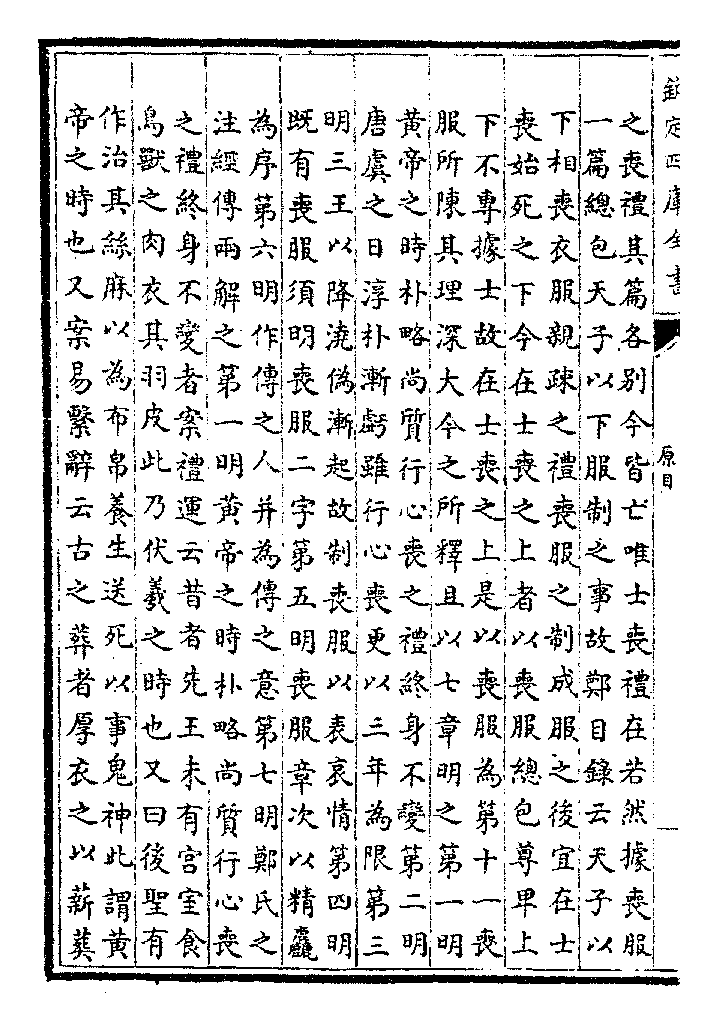 欽定四庫全書
原目
之喪禮其篇各別今皆亡唯士喪禮在若然據喪服
一篇總包天子以下服制之事故鄭目錄云天子以
下相喪衣服親疎之禮喪服之制成服之後宜在士
喪始死之下今在士喪之上者以喪服總包尊卑上
下不專據士故在士喪之上是以喪服為第十一喪
服所陳其理深大今之所釋且以七章明之第一明
黃帝之時朴略尚質行心喪之禮終身不變第二明
唐虞之日淳朴漸虧雖行心喪更以三年為限第三
明三王以降澆偽漸起故制喪服以表哀情第四明
既有喪服須明喪服二字第五明喪服章次以精麤
為序第六明作傳之人并為傳之意第七明鄭氏之
注經傳兩解之第一明黃帝之時朴略尚質行心喪
之禮終身不變者案禮運云昔者先王未有宮室食
鳥獸之肉衣其羽皮此乃伏羲之時也又曰後聖有
作治其絲麻以為布帛養生送死以事鬼神此謂黃
帝之時也又案易繫辭云古之葬者厚衣之以薪葬